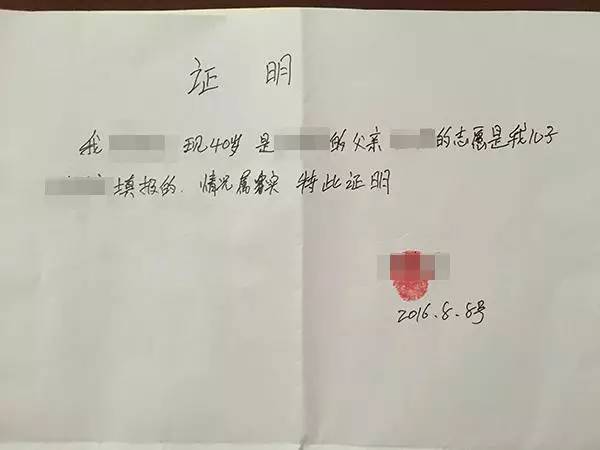 证 明
我 现40岁 是 的父亲 的志愿是我儿子
填报的. 情况属实 特此证明
2016.8.8号